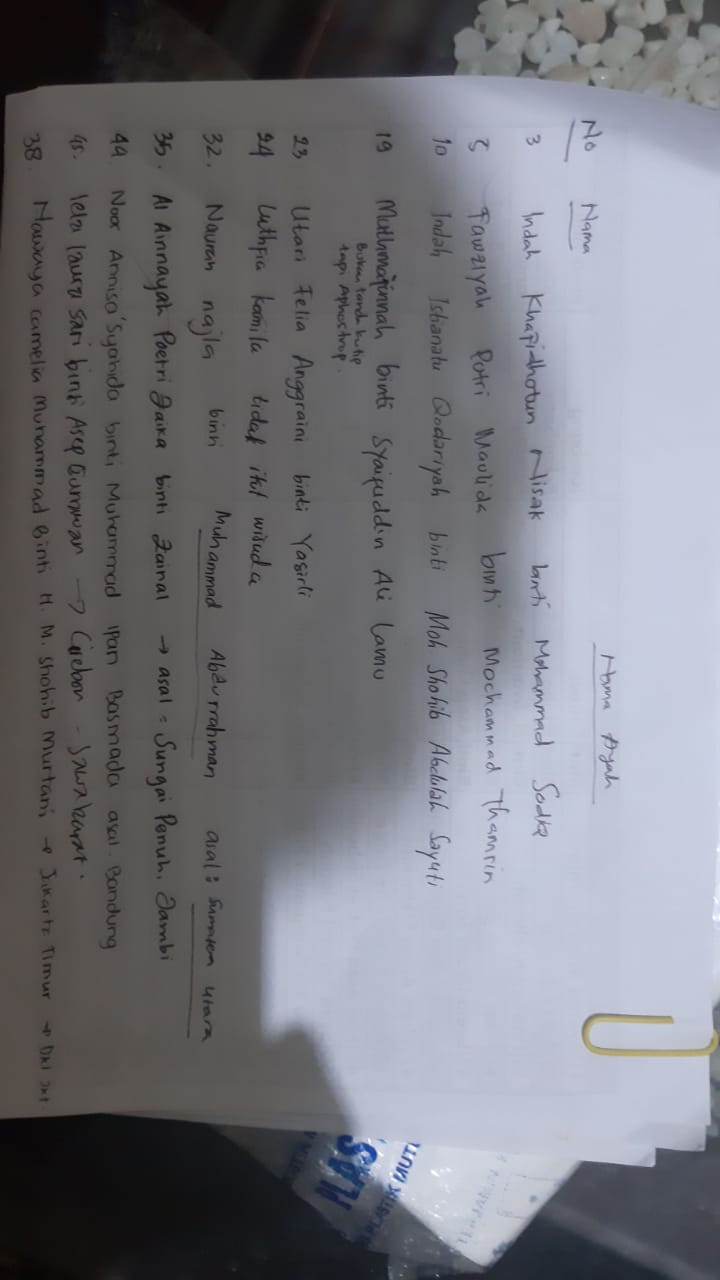 No Nama Nama Ayah
3 Indah Khafidhotun Nisak binti Mohammad Sodiq
5 Fawziyah Putri Maulida binti Mochammad Thamrin
10 Indah Istianatu Qodariyah binti Moh Shohib Abdulah Sayuti
19 Muthma'innah binti Syaifuddin Ali Lamu
Bukan tanda kutip
tapi Aphostrop.
23 Utari Felia Anggraini binti Yasirli
24 Luthfia kamila tidak ikut wisuda
32. Naurah najla binti Muhammad Abdurrahman asal: Sumatera utara
35. Al Ainnayah Poetri Zaika binti Zainal → asal = Sungai Penuh, Jambi
44 Noor Annisa'Syahida binti Muhammad Ipan Basmada asal Bandung
45. lela laura sari binti Asep Gunawan → Cirebon - Jawa barat.
38. Nawaya camelia Muhammad Binti H. M. Shohib Murtani → Jakarta Timur → DKI Jkt
PLAS